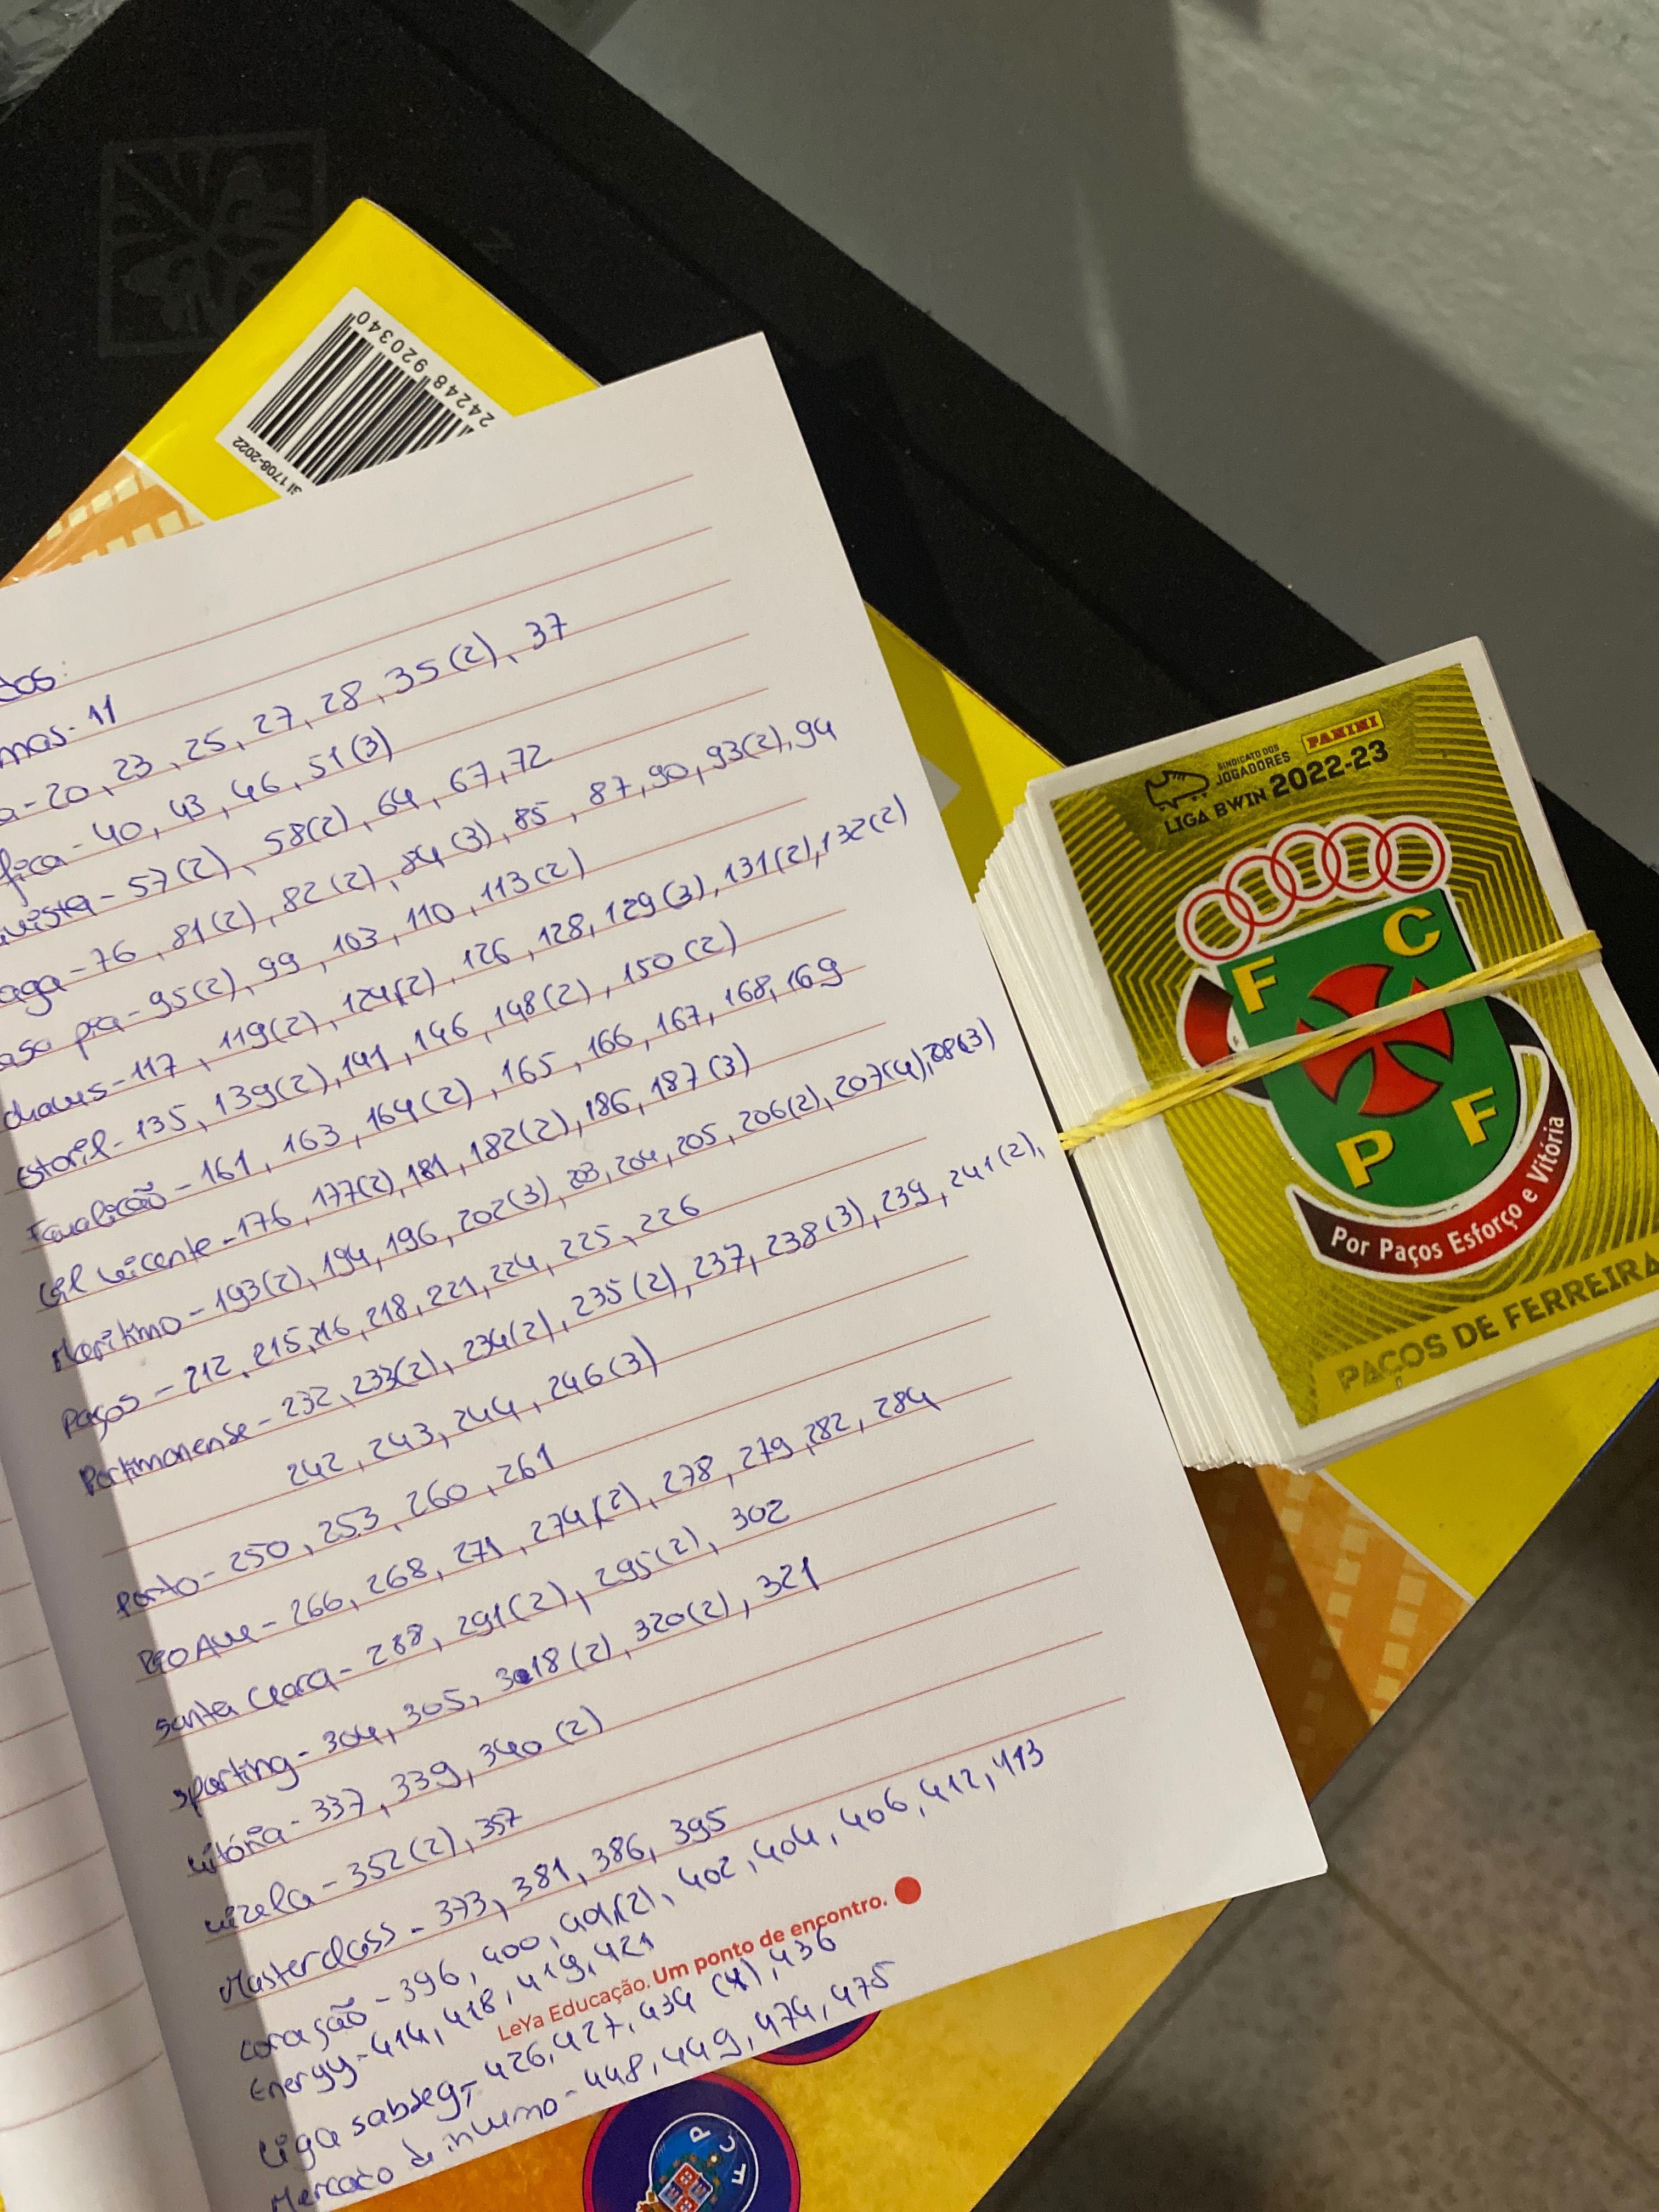 24248 920340
SI 1708-2022
dos:
mas - 11
a - 20, 23, 25, 27, 28, 35(2), 37
fica - 40, 43, 46, 51(3)
avista - 57(2), 58(2), 64, 67, 72
aga - 76, 81(2), 82(2), 84(3), 85, 87, 90, 93(2), 94
asa pia - 95(2), 99, 103, 110, 113(2)
chaves - 117, 119(2), 124(2), 126, 128, 129(3), 131(2), 132(2)
Estoril - 135, 139(2), 141, 146, 148(2), 150(2)
Famalicão - 161, 163, 164(2), 165, 166, 167, 168, 169
Gil Vicente - 176, 177(2), 181, 182(2), 186, 187(3)
Marítimo - 193(2), 194, 196, 202(3), 203, 204, 205, 206(2), 207(4), 208(3)
Paços - 212, 215, 216, 218, 221, 224, 225, 226
Portimonense - 232, 233(2), 234(2), 235(2), 237, 238(3), 239, 241(2),
242, 243, 244, 246(3)
Porto - 250, 253, 260, 261
Rio Ave - 266, 268, 271, 274(2), 278, 279, 282, 284
Santa Clara - 288, 291(2), 295(2), 302
Sporting - 304, 305, 318(2), 320(2), 321
Vitória - 337, 339, 340(2)
Vizela - 352(2), 357
Masterclass - 373, 381, 386, 395
Coração - 396, 400, 401(2), 402, 404, 406, 412, 413
Energy - 414, 418, 419, 421
LeYa Educação. Um ponto de encontro.
Liga sabseg - 426, 427, 434 (4), 436
Mercado de inverno - 448, 449, 474, 475
SINDICATO DOS
JOGADORES
PANINI
LIGA BWIN 2022-23
F C
P F
Por Paços Esforço e Vitória
PAÇOS DE FERREIRA
F C P